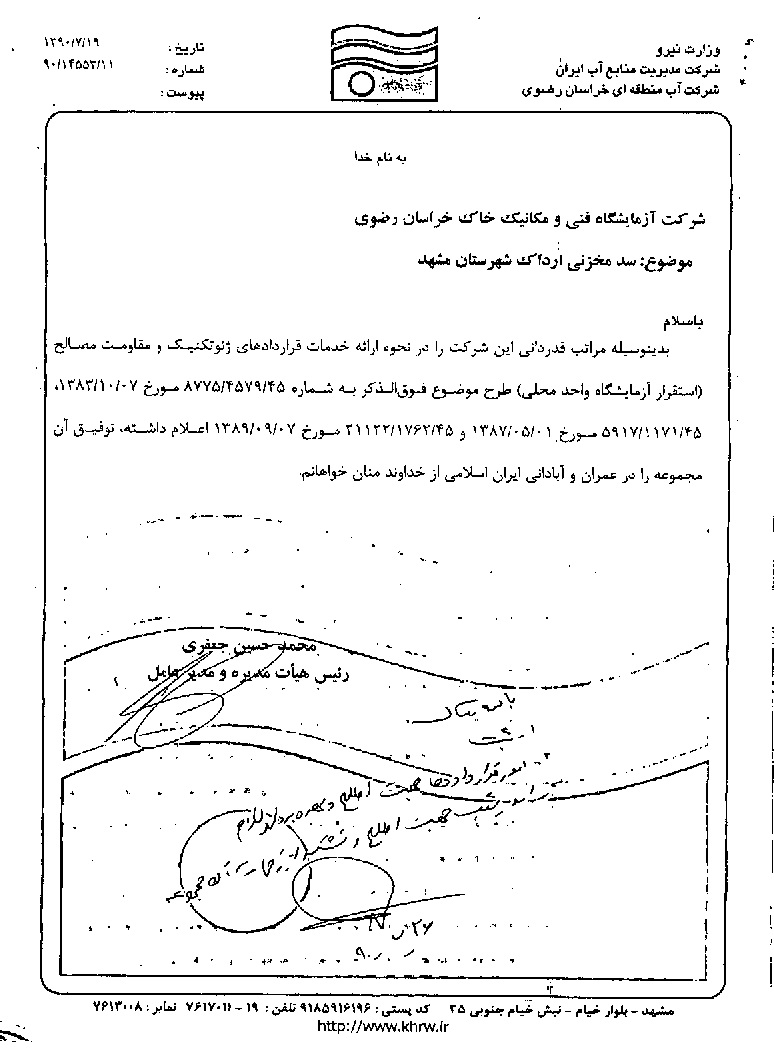 وزارت نیرو
شرکت مدیریت منابع آب ایران
شرکت آب منطقه ای خراسان رضوی
تاریخ : ۱۳۹۰/۷/۱۹
شماره : ۹۰/۱۴۵۵۳/۱۱
پیوست :
به نام خدا
شرکت آزمایشگاه فنی و مکانیک خاک خراسان رضوی
موضوع: سد مخزنی ارداک شهرستان مشهد
باسلام
بدینوسیله مراتب قدردانی این شرکت را در نحوه ارائه خدمات قراردادهای ژئوتکنیک و مقاومت مصالح
(استقرار آزمایشگاه واحد محلی) طرح موضوع فوق‌الذکر به شماره ۸۷۷۵/۴۵۷۹/۴۵ مورخ ۱۳۸۳/۱۰/۰۷،
۵۹۱۷/۱۱۷۱/۴۵ مورخ ۱۳۸۷/۰۵/۰۱ و ۲۱۱۲۲/۱۷۶۲/۴۵ مورخ ۱۳۸۹/۰۹/۰۷ اعلام داشته، توفیق آن
مجموعه را در عمران و آبادانی ایران اسلامی از خداوند منان خواهانم.
محمد حسین جعفری
رئیس هیأت مدیره و مدیر عامل
امور قراردادها جهت اطلاع و بهره برداری لازم
جهت اطلاع و تشکر از زحمات آن مجموعه
مشهد - بلوار خیام - نبش خیام جنوبی ۲۵ کد پستی : ۹۱۸۵۹۱۶۱۹۶ تلفن : ۱۹ - ۷۶۱۷۰۱۱ نمابر : ۷۶۱۳۰۰۸
http://www.khrw.ir